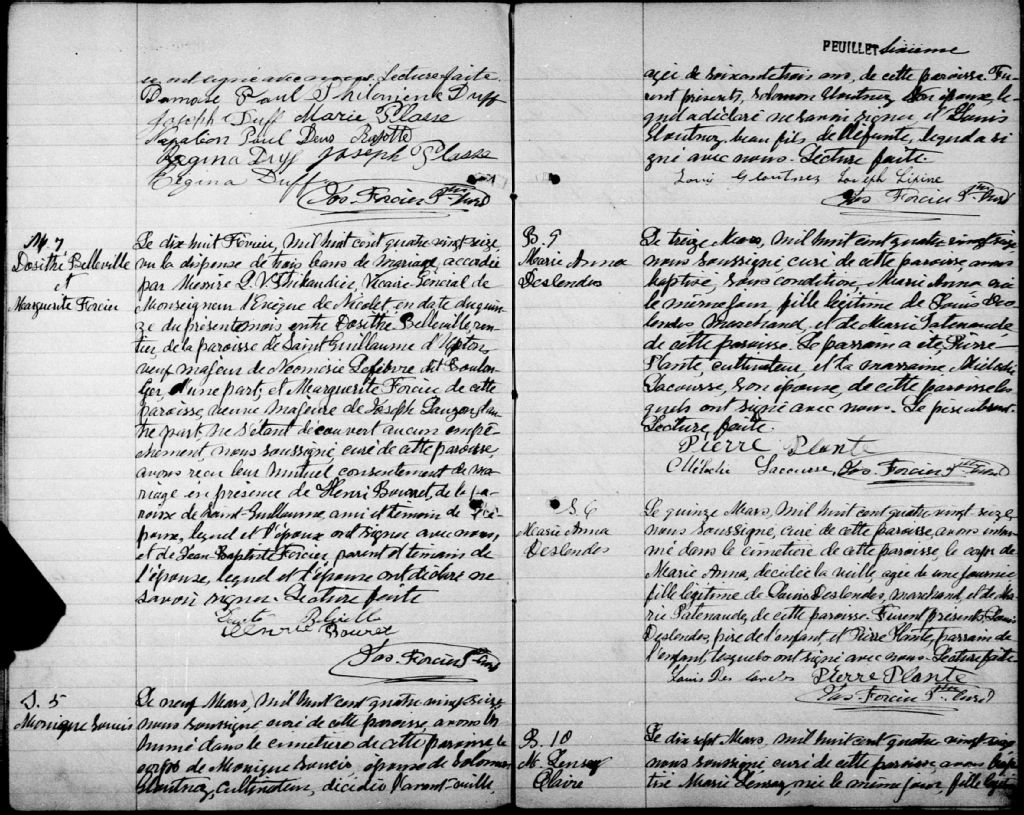 ont signé avec nous. Lecture faite.
Damase Paul Philomène Duff
Joseph Duff Marie Plasse
Napoleon Paul Rajotte
Regina Duff Joseph Plasse
Regina Duff
Jos. Forcier Ptre Curé
M. 7
Dosithé Belleville
et
Marguerite Forcier
Le dix huit Février, mil huit cent quatre vingt seize,
vu la dispense de trois bans de mariage, accordée
par Messire Vicaire Général de
Monseigneur l'Evêque de Nicolet en date du quin-
ze du présent mois entre Dosithé Belleville, ren-
tier, de la paroisse de Saint Guillaume d'Upton,
veuf majeur de Lefebvre dit Boulan-
ger, d'une part, et Marguerite Forcier de cette
paroisse, veuve majeure de Joseph Lauzon, d'au-
tre part, ne s'étant découvert aucun empê-
chement, nous soussigné, curé de cette paroisse,
avons reçu leur mutuel consentement de ma-
riage en présence de Henri Bourret, de la pa-
roisse de Saint-Guillaume, ami et témoin de l'é-
poux, lequel et l'époux ont signé avec nous,
et de Jean-Baptiste Forcier, parent et témoin de
l'épouse, lequel et l'épouse ont déclaré ne
savoir signer. Lecture faite.
Bourret
Jos. Forcier Ptre Curé
S. 5
Monique Soucis
Le neuf Mars, mil huit cent quatre vingt seize,
nous soussigné curé de cette paroisse avons in-
humé dans le cimetière de cette paroisse, le
corps de Monique Soucis, épouse de Solomon
cultivateur, décédée l'avant-veille,
FEUILLET sixième
agée de soixante trois ans, de cette paroisse. Fu-
rent présents, Solomon son époux, le-
quel a déclaré ne savoir signer, et Louis
beau fils de défunte, lequel a si-
gné avec nous. Lecture faite.
Joseph Lépine
Jos. Forcier Ptre Curé
B. 9
Marie Anna
Deslendes
Le treize Mars, mil huit cent quatre vingt seize
nous soussigné, curé de cette paroisse, avons
baptisé, sous condition, Marie Anna née
le même jour, fille légitime de Louis Des-
lendes marchand et de Marie Patenaude
de cette paroisse. Le parrain a été Pierre
Plante, cultivateur, et la marraine
Lacourse, son épouse, de cette paroisse les-
quels ont signé avec nous. Le père absent.
Lecture faite.
Pierre Plante
Lacourse Jos. Forcier Ptre Curé
S. 6
Marie Anna
Deslendes
Le quinze Mars, mil huit cent quatre vingt seize,
nous soussigné, curé de cette paroisse, avons inhu-
mé dans le cimetière de cette paroisse, le corps de
Marie Anna, décédée la veille, agée de une journée
fille légitime de Louis Deslendes, marchand, et de Ma-
rie Patenaude, de cette paroisse. Furent présents, Louis
Deslendes, père de l'enfant et Pierre Plante, parrain de
l'enfant, lesquels ont signé avec nous. Lecture faite
Louis Des Pierre Plante
Jos. Forcier Ptre Curé
B. 10
M.
Claire
Le dix sept Mars, mil huit cent quatre vingt seize
nous soussigné curé de cette paroisse, avons bap-
tisé Marie née le même jour, fille légiti-